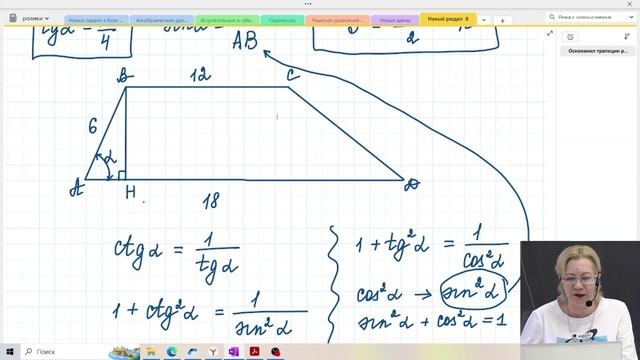 ролики
Новые задачи в базе
Алгебраические дро...
Вступительные в губе...
Параметры
Решение уравнений ...
Новые шины
Новый раздел 8
Поиск
Основания трапеции р...
tgα =
4
sinα =
AB
2
B 12 C
6
α
A H 18 D
ctgα = 1/tgα
1 + ctg²α = 1/sin²α
1 + tg²α = 1/cos²α
cos²α → sin²α
sin²α + cos²α = 1
Поиск